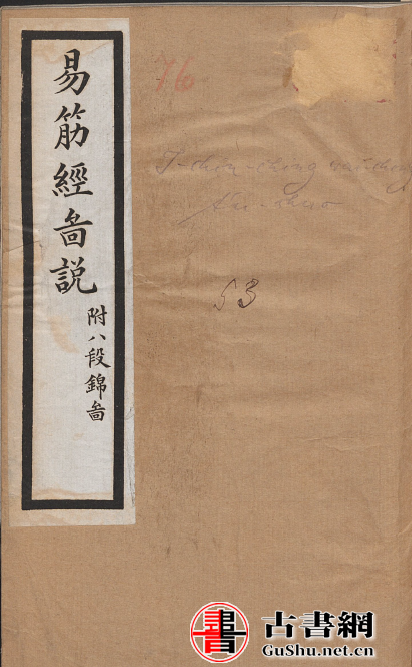 易筋經啚説
附八段錦啚
76
53
古書網
GuShu.net.cn